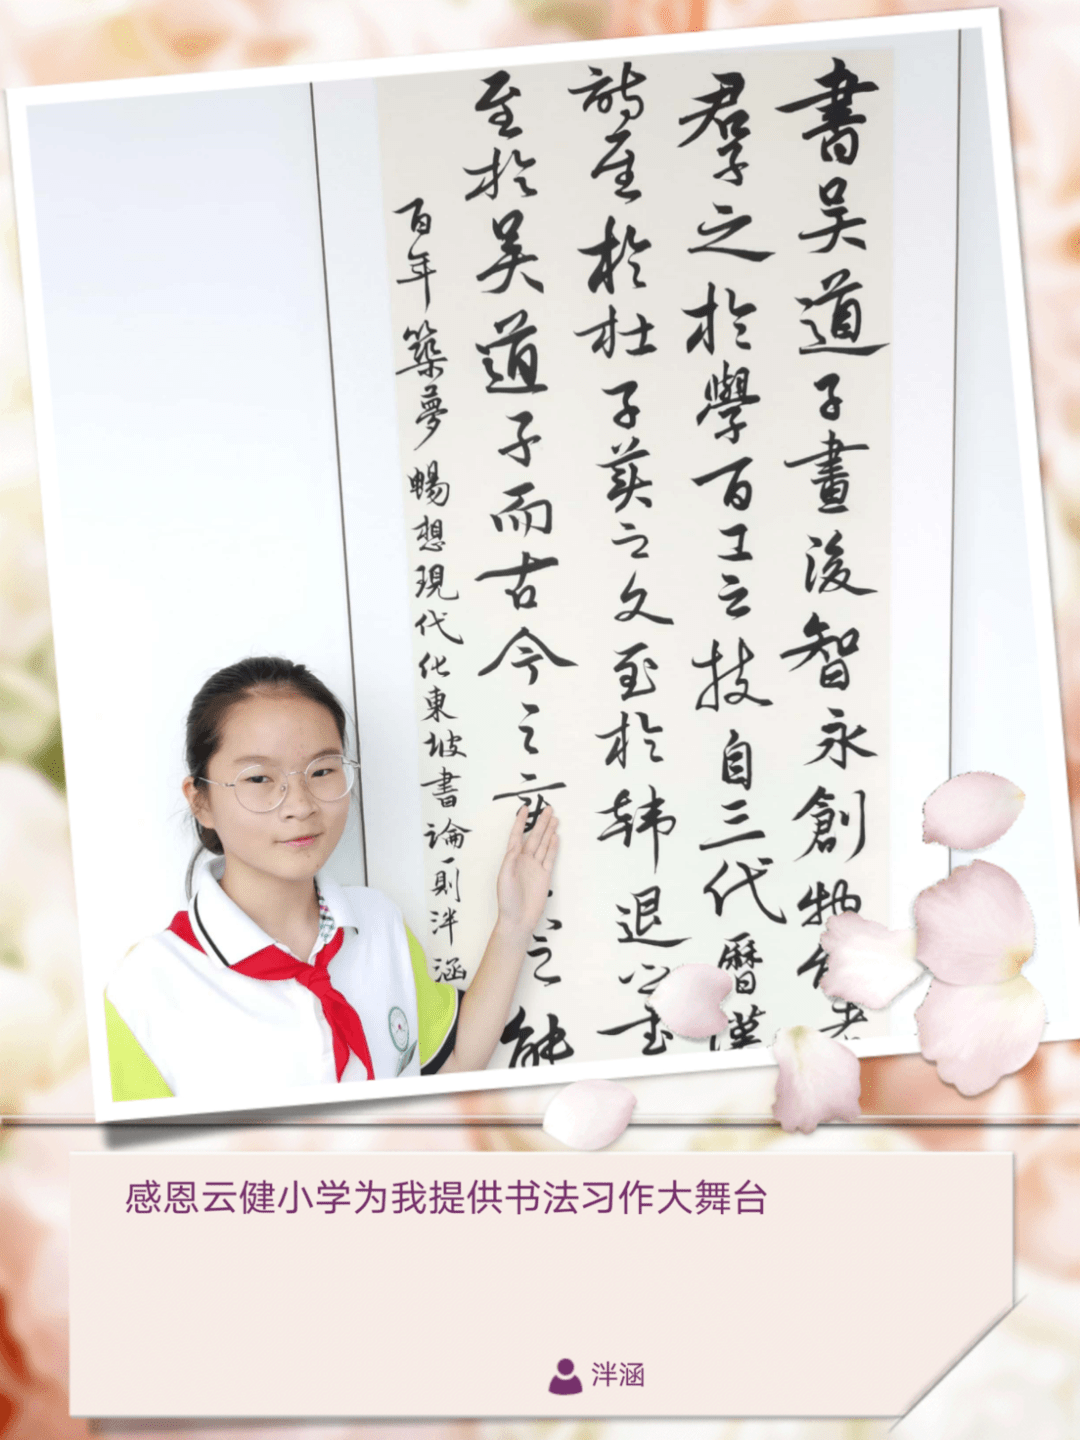 書吴道子畫後智永創物
君子之於學百工之技自三代曆漢
詩至於杜子美之文至於韩退
至於吴道子而古今之之能
百年築夢暢想現代化東坡書論一則泮涵
感恩云健小学为我提供书法习作大舞台
泮涵